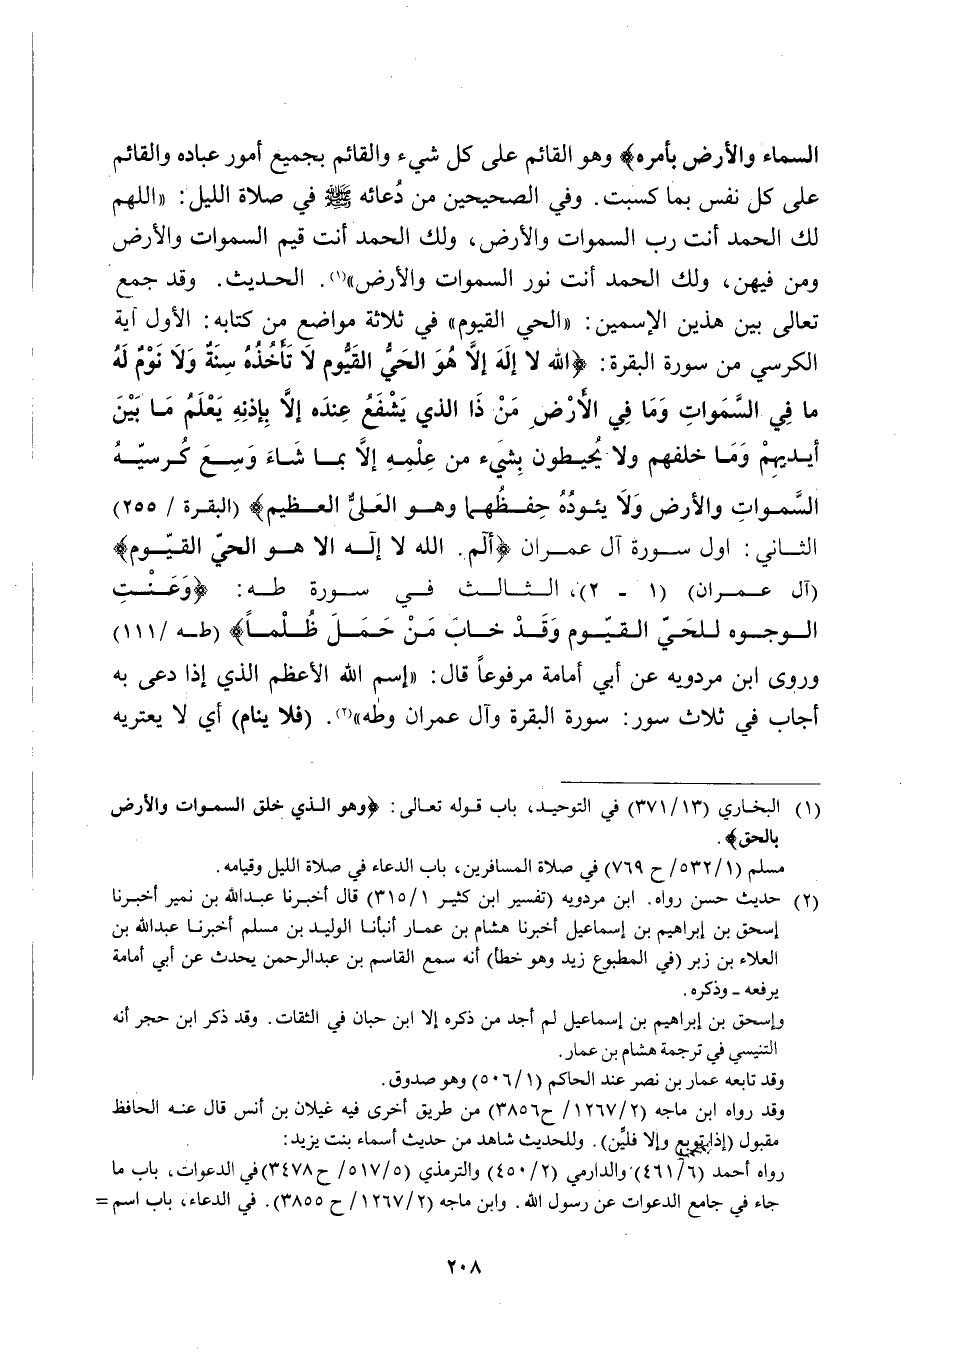 السماء والأرض بأمره﴾ وهو القائم على كل شيء والقائم بجميع أمور عباده والقائم
على كل نفس بما كسبت. وفي الصحيحين من دُعائه ﷺ في صلاة الليل: «اللهم
لك الحمد أنت رب السموات والأرض، ولك الحمد أنت قيم السموات والأرض
ومن فيهن، ولك الحمد أنت نور السموات والأرض»(١). الحديث. وقد جمع
تعالى بين هذين الإسمين: «الحي القيوم» في ثلاثة مواضع من كتابه: الأول آية
الكرسي من سورة البقرة: ﴿الله لا إلَهَ إلاَّ هُوَ الحَيُّ القَيُّوم لاَ تَأخُذُهُ سِنَةٌ وَلاَ نَوْمٌ لَهُ
ما فِي السَّمَواتِ وَمَا فِي الأَرْضِ مَنْ ذَا الذي يَشْفَعُ عِندَه إلاَّ بِإذنِهِ يَعْلَمُ مَا بَيْنَ
أيديهِمْ وَمَا خلفهم ولا يُحيطون بِشَيء من عِلْمِهِ إلاَّ بما شَاءَ وَسِعَ كُرسيّهُ
السَّمواتِ والأرض وَلاَ يئودُهُ حِفظُهما وهو العَليُّ العظيم﴾ (البقرة / ٢٥٥)
الثاني: اول سورة آل عمران ﴿ألَم. الله لا إلَه الا هو الحيّ القيّوم﴾
(آل عمران) (١ - ٢)، الثالث في سورة طه: ﴿وَعَنْتِ
الوجوه للحَيّ القيّوم وَقَدْ خابَ مَنْ حَمَلَ ظُلماً﴾ (طه /١١١)
وروى ابن مردويه عن أبي أمامة مرفوعاً قال: «إسم الله الأعظم الذي إذا دعى به
أجاب في ثلاث سور: سورة البقرة وآل عمران وطه»(٢). (فلا ينام) أي لا يعتريه
(١) البخاري (٣٧١/١٣) في التوحيد، باب قوله تعالى: ﴿وهو الذي خلق السموات والأرض
بالحق﴾.
مسلم (٥٣٢/١/ ح ٧٦٩) في صلاة المسافرين، باب الدعاء في صلاة الليل وقيامه.
(٢) حديث حسن رواه. ابن مردويه (تفسير ابن كثير ٣١٥/١) قال أخبرنا عبدالله بن نمير أخبرنا
إسحق بن إبراهيم بن إسماعيل أخبرنا هشام بن عمار أنبأنا الوليد بن مسلم أخبرنا عبدالله بن
العلاء بن زبر (في المطبوع زيد وهو خطأ) أنه سمع القاسم بن عبدالرحمن يحدث عن أبي أمامة
يرفعه ـ وذكره.
وإسحق بن إبراهيم بن إسماعيل لم أجد من ذكره إلا ابن حبان في الثقات. وقد ذكر ابن حجر أنه
التنيسي في ترجمة هشام بن عمار.
وقد تابعه عمار بن نصر عند الحاكم (٥٠٦/١) وهو صدوق.
وقد رواه ابن ماجه (١٢٦٧/٢/ ح٣٨٥٦) من طريق أخرى فيه غيلان بن أنس قال عنه الحافظ
مقبول (إذا توبع وإلا فليّن). وللحديث شاهد من حديث أسماء بنت يزيد:
رواه أحمد (٤٦١/٦) والدارمي (٤٥٠/٢) والترمذي (٥١٧/٥/ ح٣٤٧٨)في الدعوات، باب ما
جاء في جامع الدعوات عن رسول الله. وابن ماجه (١٢٦٧/٢/ ح ٣٨٥٥). في الدعاء، باب اسم =
٢٠٨